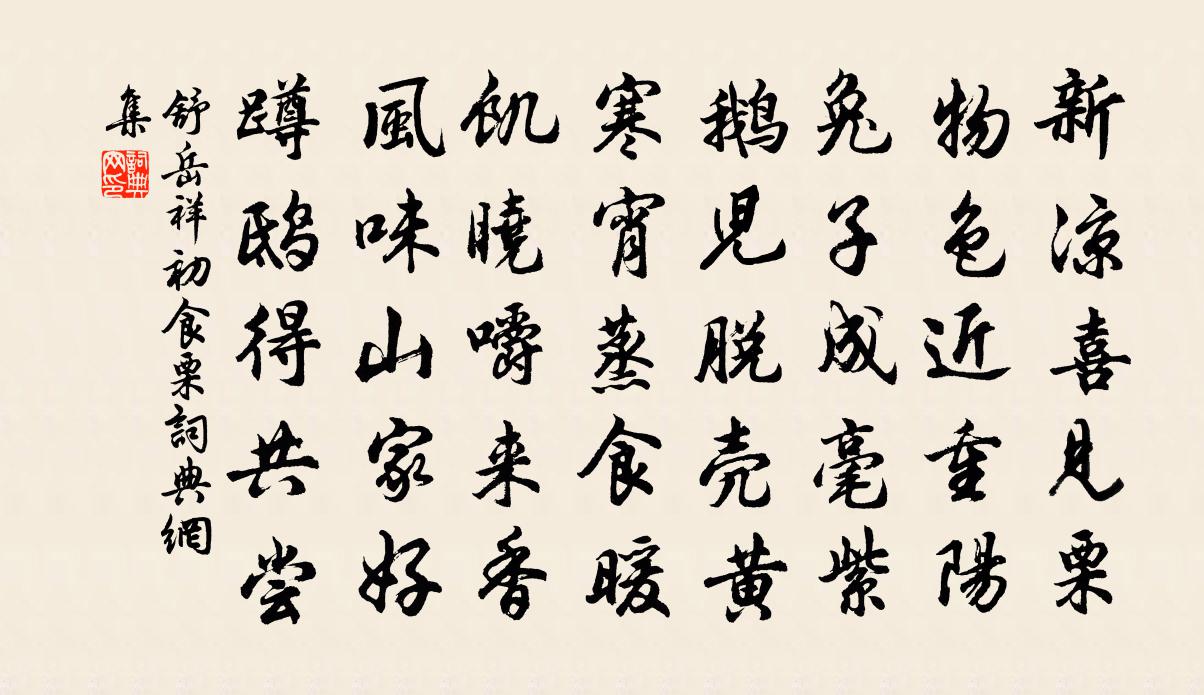 新涼喜見栗
物色近重陽
兔子成毫紫
鵝児脫壳黄
寒宵蒸食暖
飢曉嚼来香
風味山家好
蹲鴟得共尝
舒岳祥初食栗詞典網
集
詞典
网印